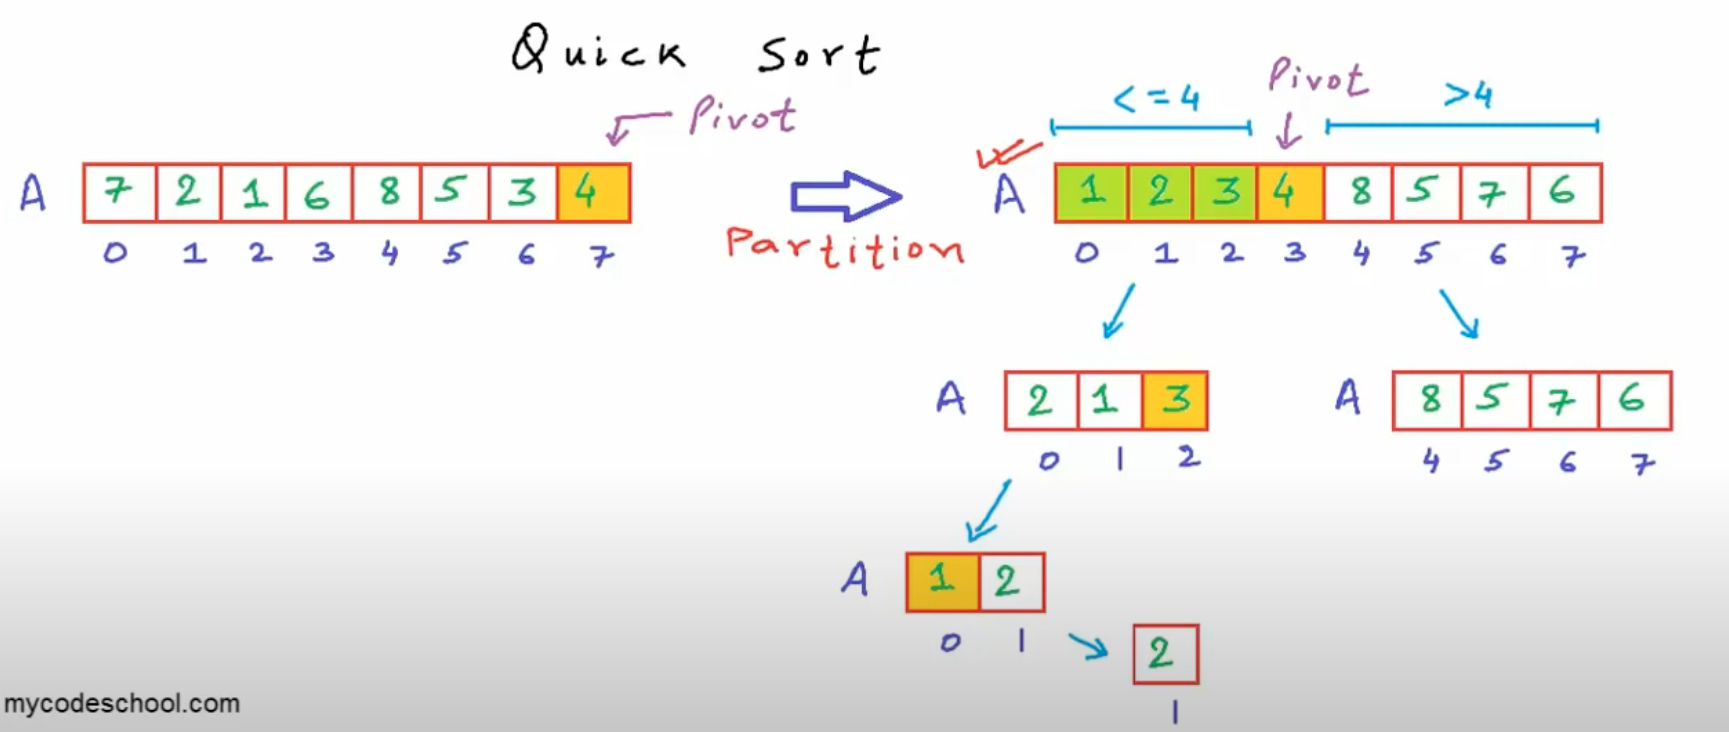 Quick Sort
Pivot
A 7 2 1 6 8 5 3 4
0 1 2 3 4 5 6 7
Partition
<=4 Pivot >4
A 1 2 3 4 8 5 7 6
0 1 2 3 4 5 6 7
A 2 1 3
0 1 2
A 8 5 7 6
4 5 6 7
A 1 2
0 1
2
1
mycodeschool.com